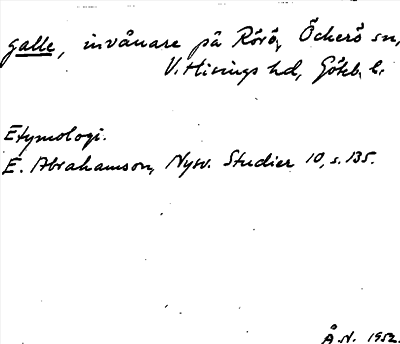 galle, invånare på Rörö, Öckerö sn,
V. Hisings hd, Göteb. l.
Etymologi.
E. Abrahamson, Nysv. Studier 10, s. 135.
Å. N. 1952.